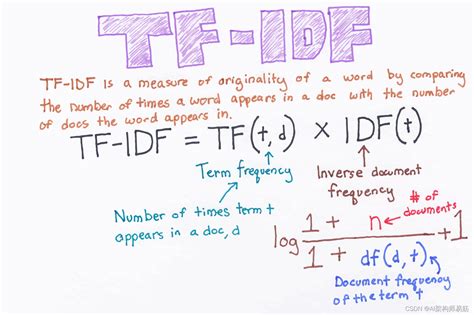 TF-IDF
TF-IDF is a measure of originality of a word by comparing
the number of times a word appears in a doc with the number
of docs the word appears in.
TF-IDF = TF(t,d) × IDF(t)
Term frequency
Inverse document
frequency
Number of times term t
appears in a doc, d
# of
documents
log 1 + n
1 + df(d,t) + 1
Document frequency
of the term t
CSDN @AI架构师易筋